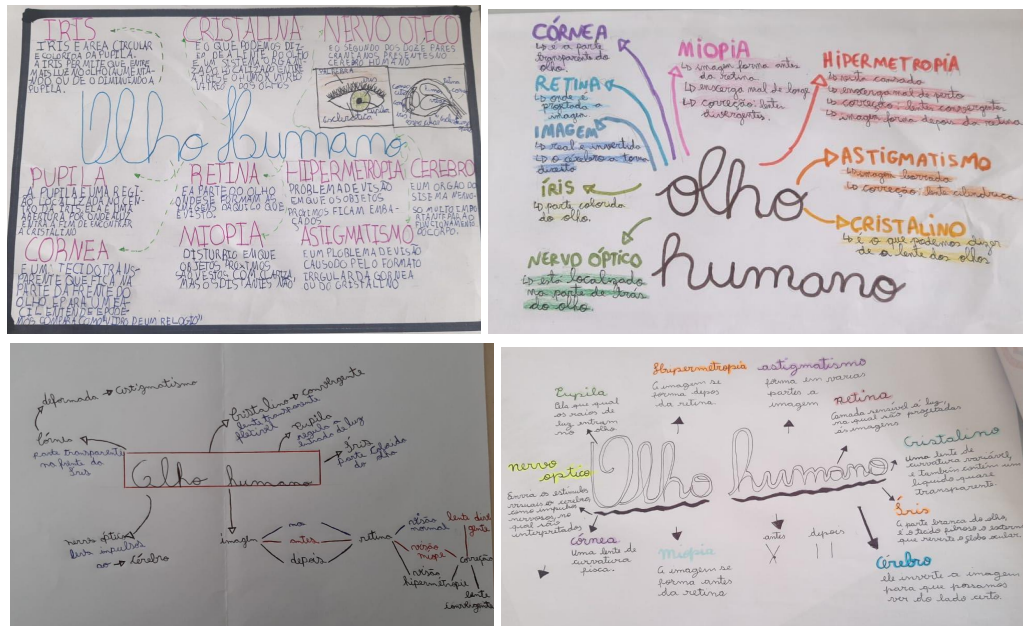 IRIS
IRIS E AREA CIRCULAR
E COLORIDA DA PUPILA.
A IRIS PERMITE QUE ENTRE
MAIS LUZ NO OLHO AUMENTA-
NDO OU DE O DIMINUINDO A
PUPILA.
CRISTALINA
E O QUE PODEMOS DIZ-
ER DE A LENTE DO OLHO
NERVO OTICO
E O SEGUNDO DOS DOZE PARES
CRANIANOS PRESENTES NO
CEREBRO HUMANO
Esclerótica
Olho Humano
PUPILA
A PUPILA E UMA REGI-
ÃO LOCALIZADA NO CEN-
TRO DA IRIS ELA É UMA
ABERTURA POR ONDE A LUZ
ENTRA A FIM DE ENCONTRAR
A CRISTALINO
RETINA
E A PARTE DO OLHO
ONDE SE FORMAM AS
IMAGENS DAQUILO QUE
E VISTO.
HIPERMETROPIA
PROBLEMA DE VISÃO
EM QUE OS OBJETOS
PROXIMOS FICAM EMBA-
ÇADOS
CEREBRO
E UM ORGÃO DO
SISTEMA NERVO-
SO MUITO IMPO
RTANTE PARA O
FUNCIONAMENTO
DO CORPO.
CORNEA
E UM TECIDO TRANS-
PARENTE QUE FICA NA
PARTE DA FRENTE DO
OLHO E PARA UM FA-
CIL ENTENDE E PODE-
MOS COMPARA COMO VIDRO DE UM RELOGIO"
MIOPIA
DISTURBIO EM QUE
OBJETOS PROXIMOS
SÃO VISTOS COM CLAREZA
MAS OS DISTANTES NÃO
ASTIGMATISMO
E UM PLOBLEMA DE VISÃO
CAUSODO PELO FORMATO
IRREGULAR DA CORNEA
OU DO CRISTALINO
CÓRNEA
↳ é a parte
transparente do
olho.
RETINA
↳ onde é
projetada a
imagem
IMAGEM
↳ real e invertida
↳ o cérebro a torna
direita
ÍRIS
↳ parte colorida
do olho.
NERVO ÓPTICO
↳ esta localizado
na parte de trás
do olho.
MIOPIA
↳ imagem forma antes
da retina
↳ enxerga mal de longe
↳ correção: lentes
divergentes.
HIPERMETROPIA
↳ enxerga mal de perto
↳ correção: lentes convergentes
↳ imagem forma depois da retina
olho
humano
ASTIGMATISMO
↳ imagem borrada
↳ correção: lente cilíndrica
CRISTALINO
↳ é o que podemos dizer
de a lente dos olhos
deformada → astigmatismo
Córnea
parte transparente
na frente da
Íris
Cristalino → convergente
lente transparente
flexível
Pupila
regula a
entrada de luz
Íris
parte Colorida
do olho
Olho humano
nervo óptico
leva impulsos
ao → Cérebro
imagem
na
antes
depois
retina
visão
normal
visão
míope
visão
hipermétrope
lente diver
gente
correção
lente
convergente
Pupila
Pele qual
os raios de
luz entram
no olho
Hypermetropia
A imagem se
forma depois
da retina
astigmatismo
forma em varias
partes a
imagem
retina
Camada sensível á luz,
na qual são projetadas
as imagens
Cristalino
Uma lente de
curvatura variável,
e também contém um
liquido quase
transparente.
nervo
optico
Envia os estimulos
visuais o cerebro
como impulsos
nervosos, no
qual são
interpretados
Olho humano
Íris
A parte branca do olho,
é o tecido fibroso e externo
que reveste o globo ocular.
Córnea
Uma lente de
curvatura
fisca.
Miopia
A imagem se
forma antes
da retina
antes
depois
Cérebro
ele inverte a imagem
para que possamos
ver do lado certo.